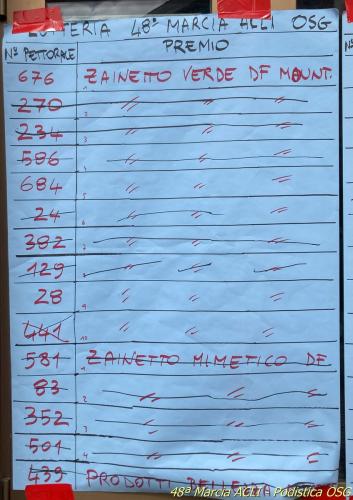 LOTTERIA 48ª MARCIA ACLI OSG
Nº PETTORALE PREMIO
676 ZAINETTO VERDE DF MOUNT.
270 " " "
234 " " "
586 " " "
684 " " "
24 " " "
382 " " "
129 " " "
28 " " "
441 " " "
581 ZAINETTO MIMETICO DF
83 " " "
352 " " "
501 " " "
439 PRODOTTI BELLEZZA
48ª Marcia ACLI Podistica OSG